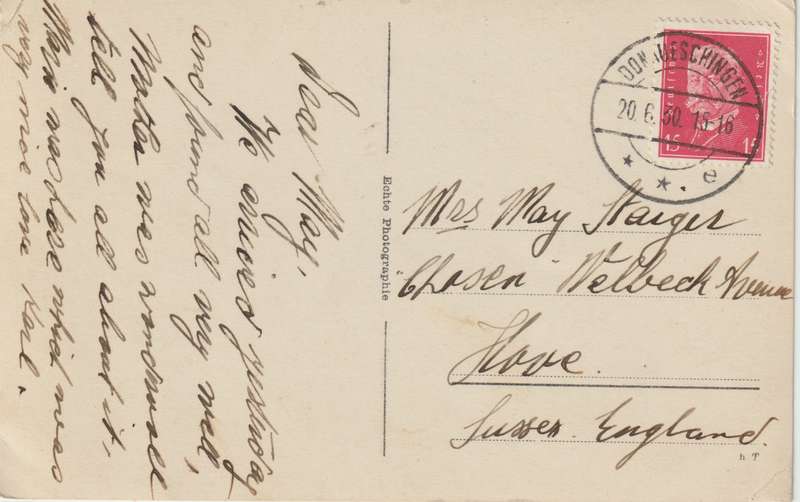 Dear May,
We arrived yesterday
and found all very well,
Mother was wonderfull
tell you all about it,
Maria was here which was
very nice love Karl.
Echte Photographie
DONAUESCHINGEN
20.6.30. 15-16
* * e
15 15
Mrs May Staiger
"Chosen" Welbeck Avenue
Hove.
Sussex. England.
h T